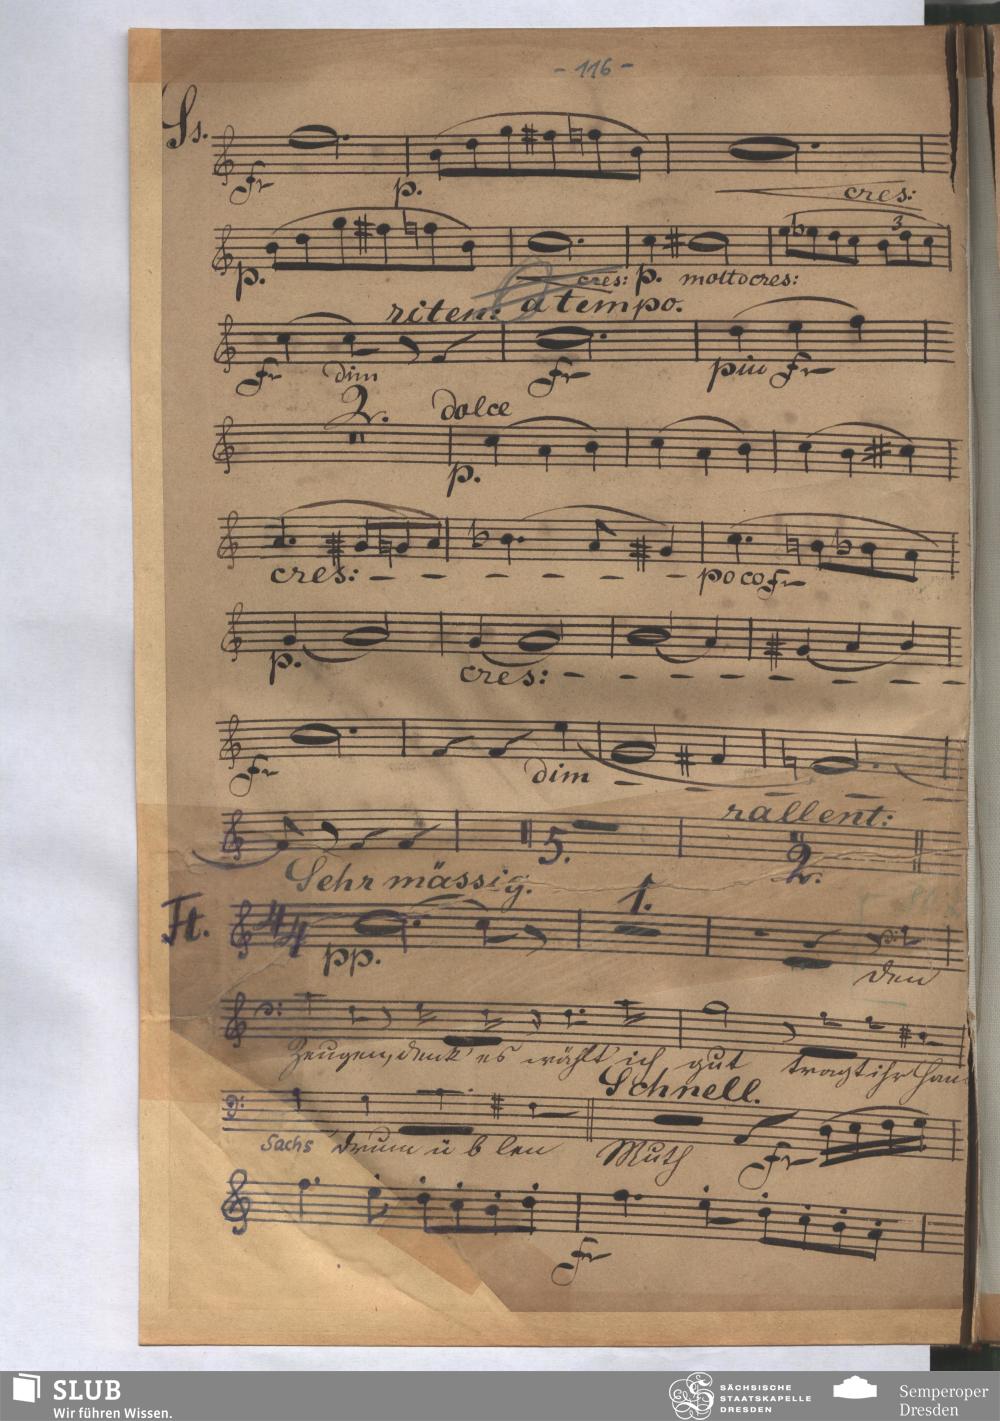 - 116 -
Ss.
Fr p. cres:
3
p. cres: p. molto cres:
riten: a tempo.
Fr dim Fr piu Fr
2. dolce
p.
cres: poco Fr
p. cres:
Fr dim
rallent:
5. 2.
Sehr mässig.
Ft. 4/4 1.
pp. den
Zeugen, denk' es wählt ich gut tragt ihr Han
Schnell.
Sachs drum ü b len Muth Fr
Fr
SLUB
Wir führen Wissen.
SÄCHSISCHE
STAATSKAPELLE
DRESDEN
Semperoper
Dresden